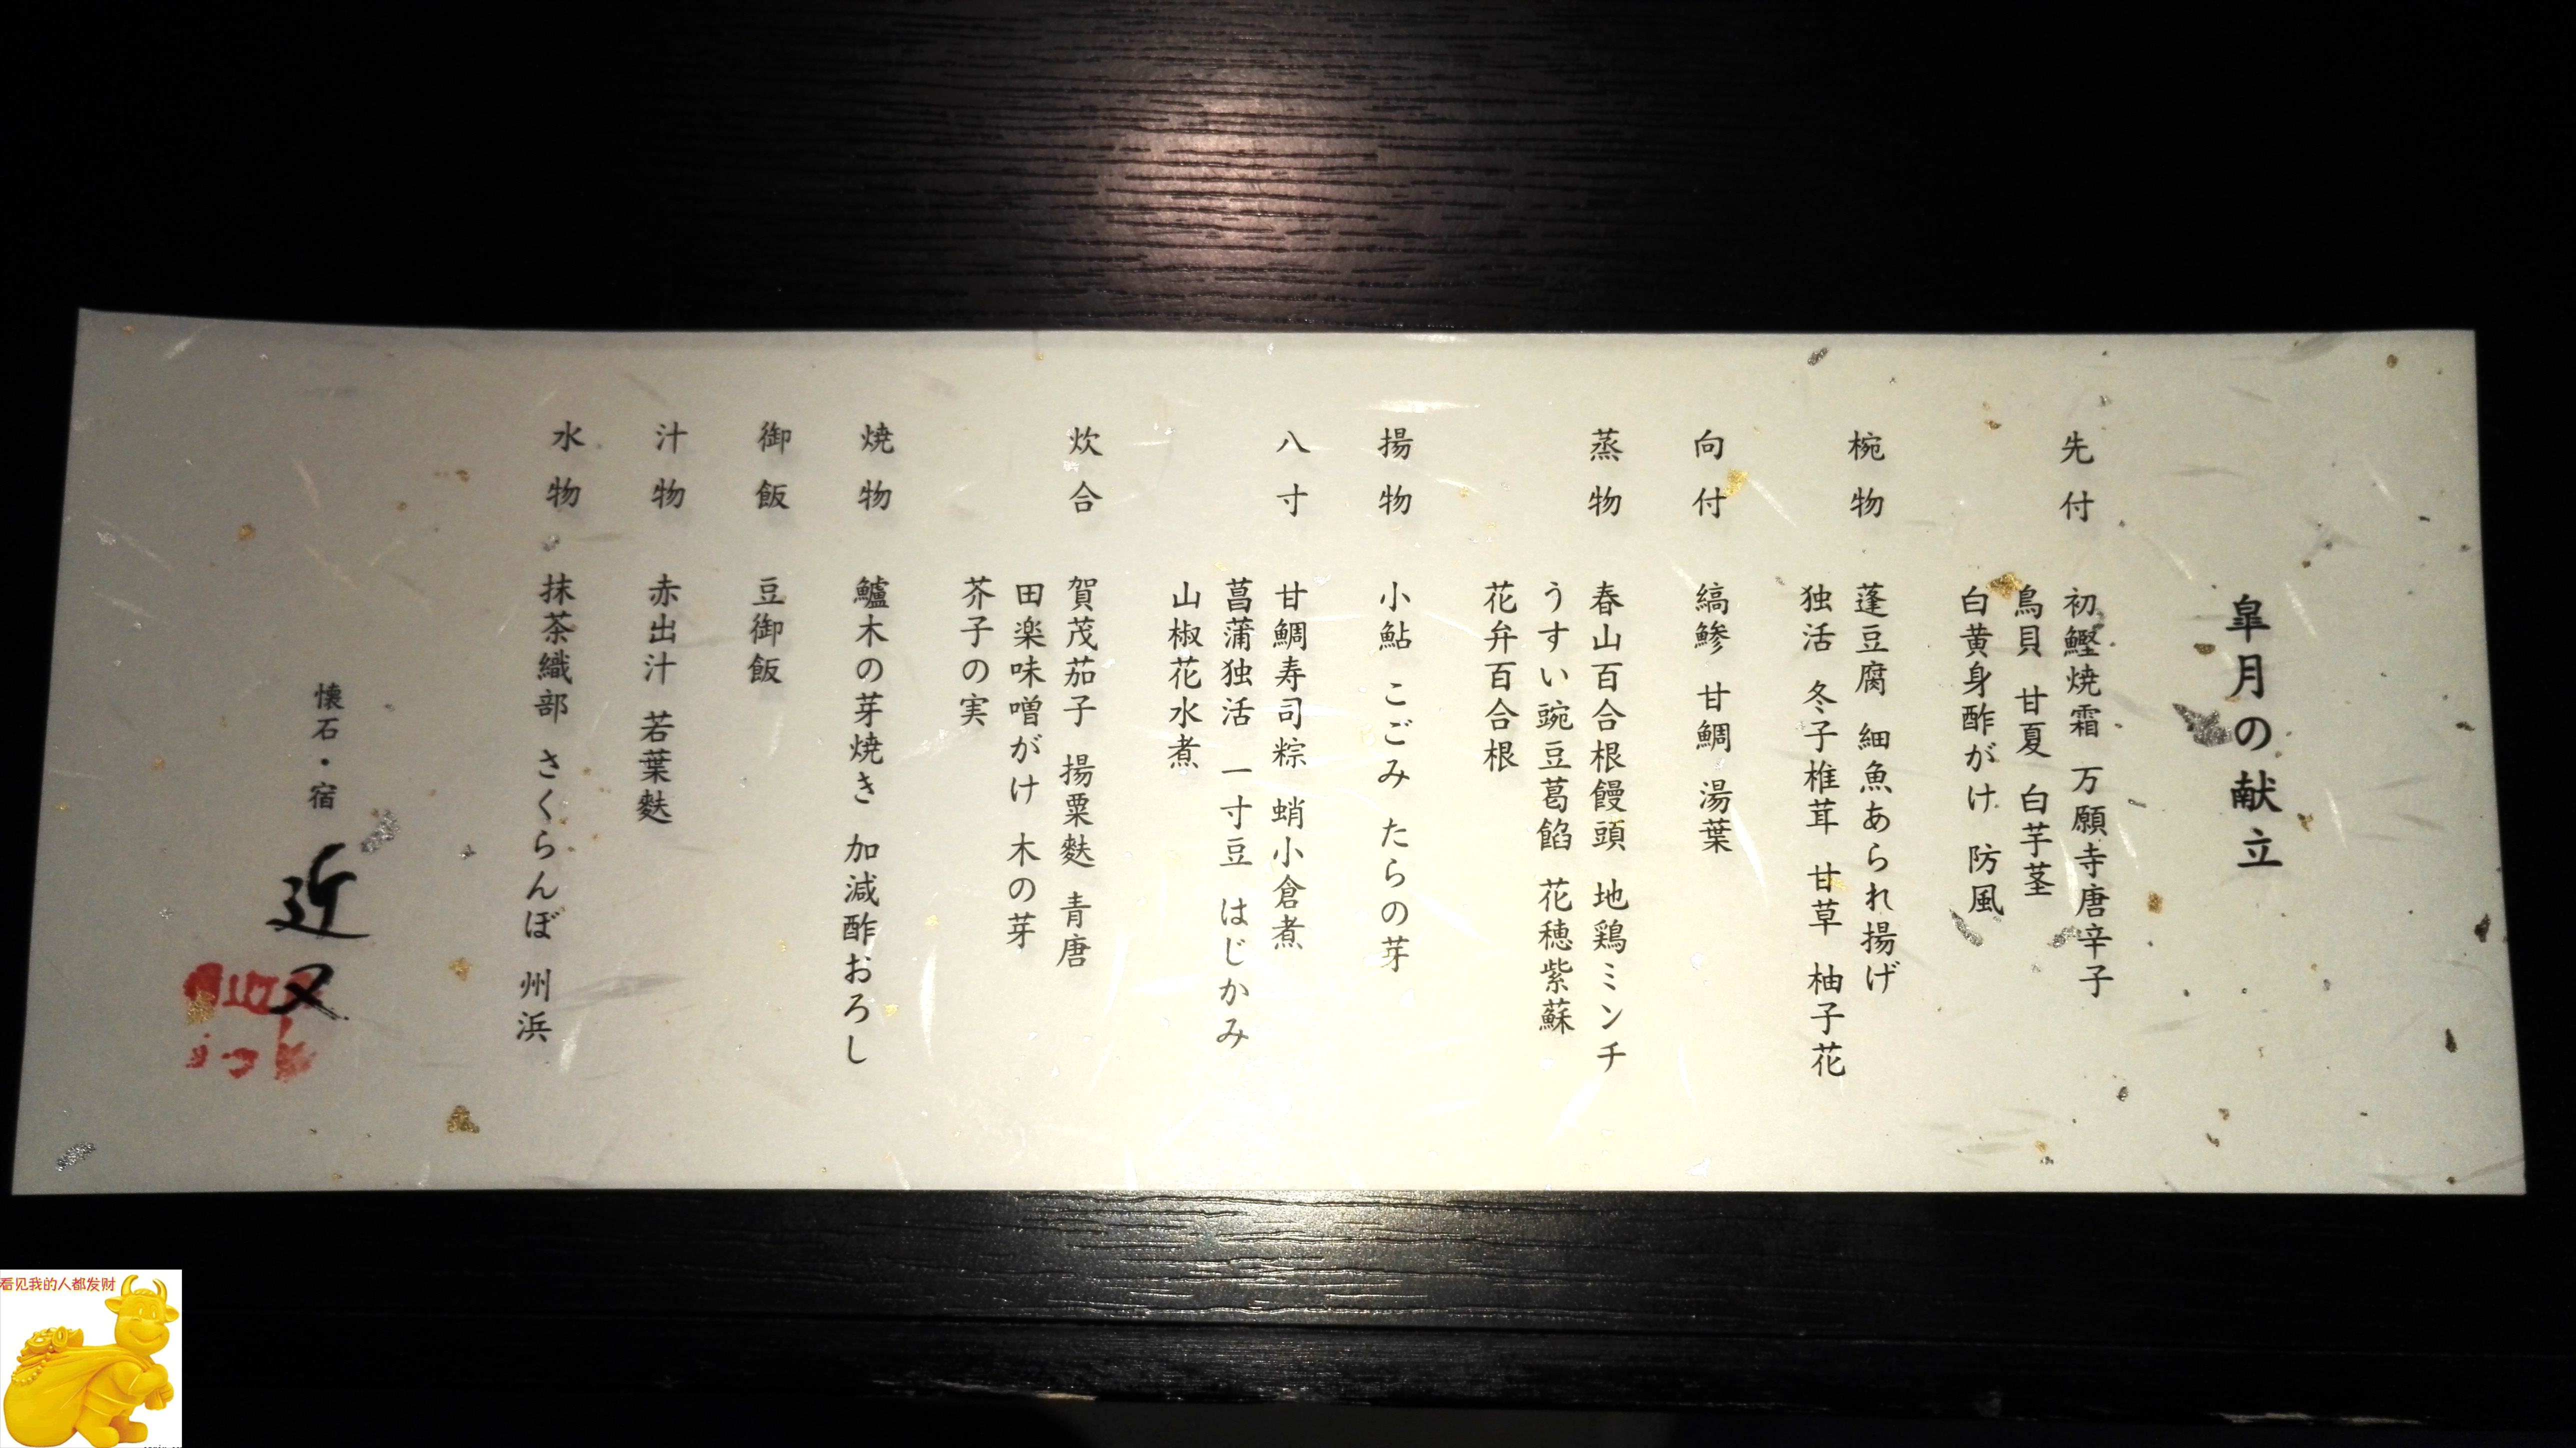 皐月の献立
先付
初鰹焼霜 万願寺唐辛子
鳥貝 甘夏 白芋茎
白黄身酢がけ 防風
椀物
蓬豆腐 細魚あられ揚げ
独活 冬子椎茸 甘草 柚子花
向付
縞鯵 甘鯛 湯葉
蒸物
春山百合根饅頭 地鶏ミンチ
うすい豌豆葛餡 花穂紫蘇
花弁百合根
揚物
小鮎 こごみ たらの芽
八寸
甘鯛寿司粽 蛸小倉煮
菖蒲独活 一寸豆 はじかみ
山椒花水煮
炊合
賀茂茄子 揚粟麩 青唐
田楽味噌がけ 木の芽
芥子の実
焼物
鱸木の芽焼き 加減酢おろし
御飯
豆御飯
汁物
赤出汁 若葉麩
水物
抹茶織部 さくらんぼ 州浜
懐石・宿
近又
看见我的人都发财